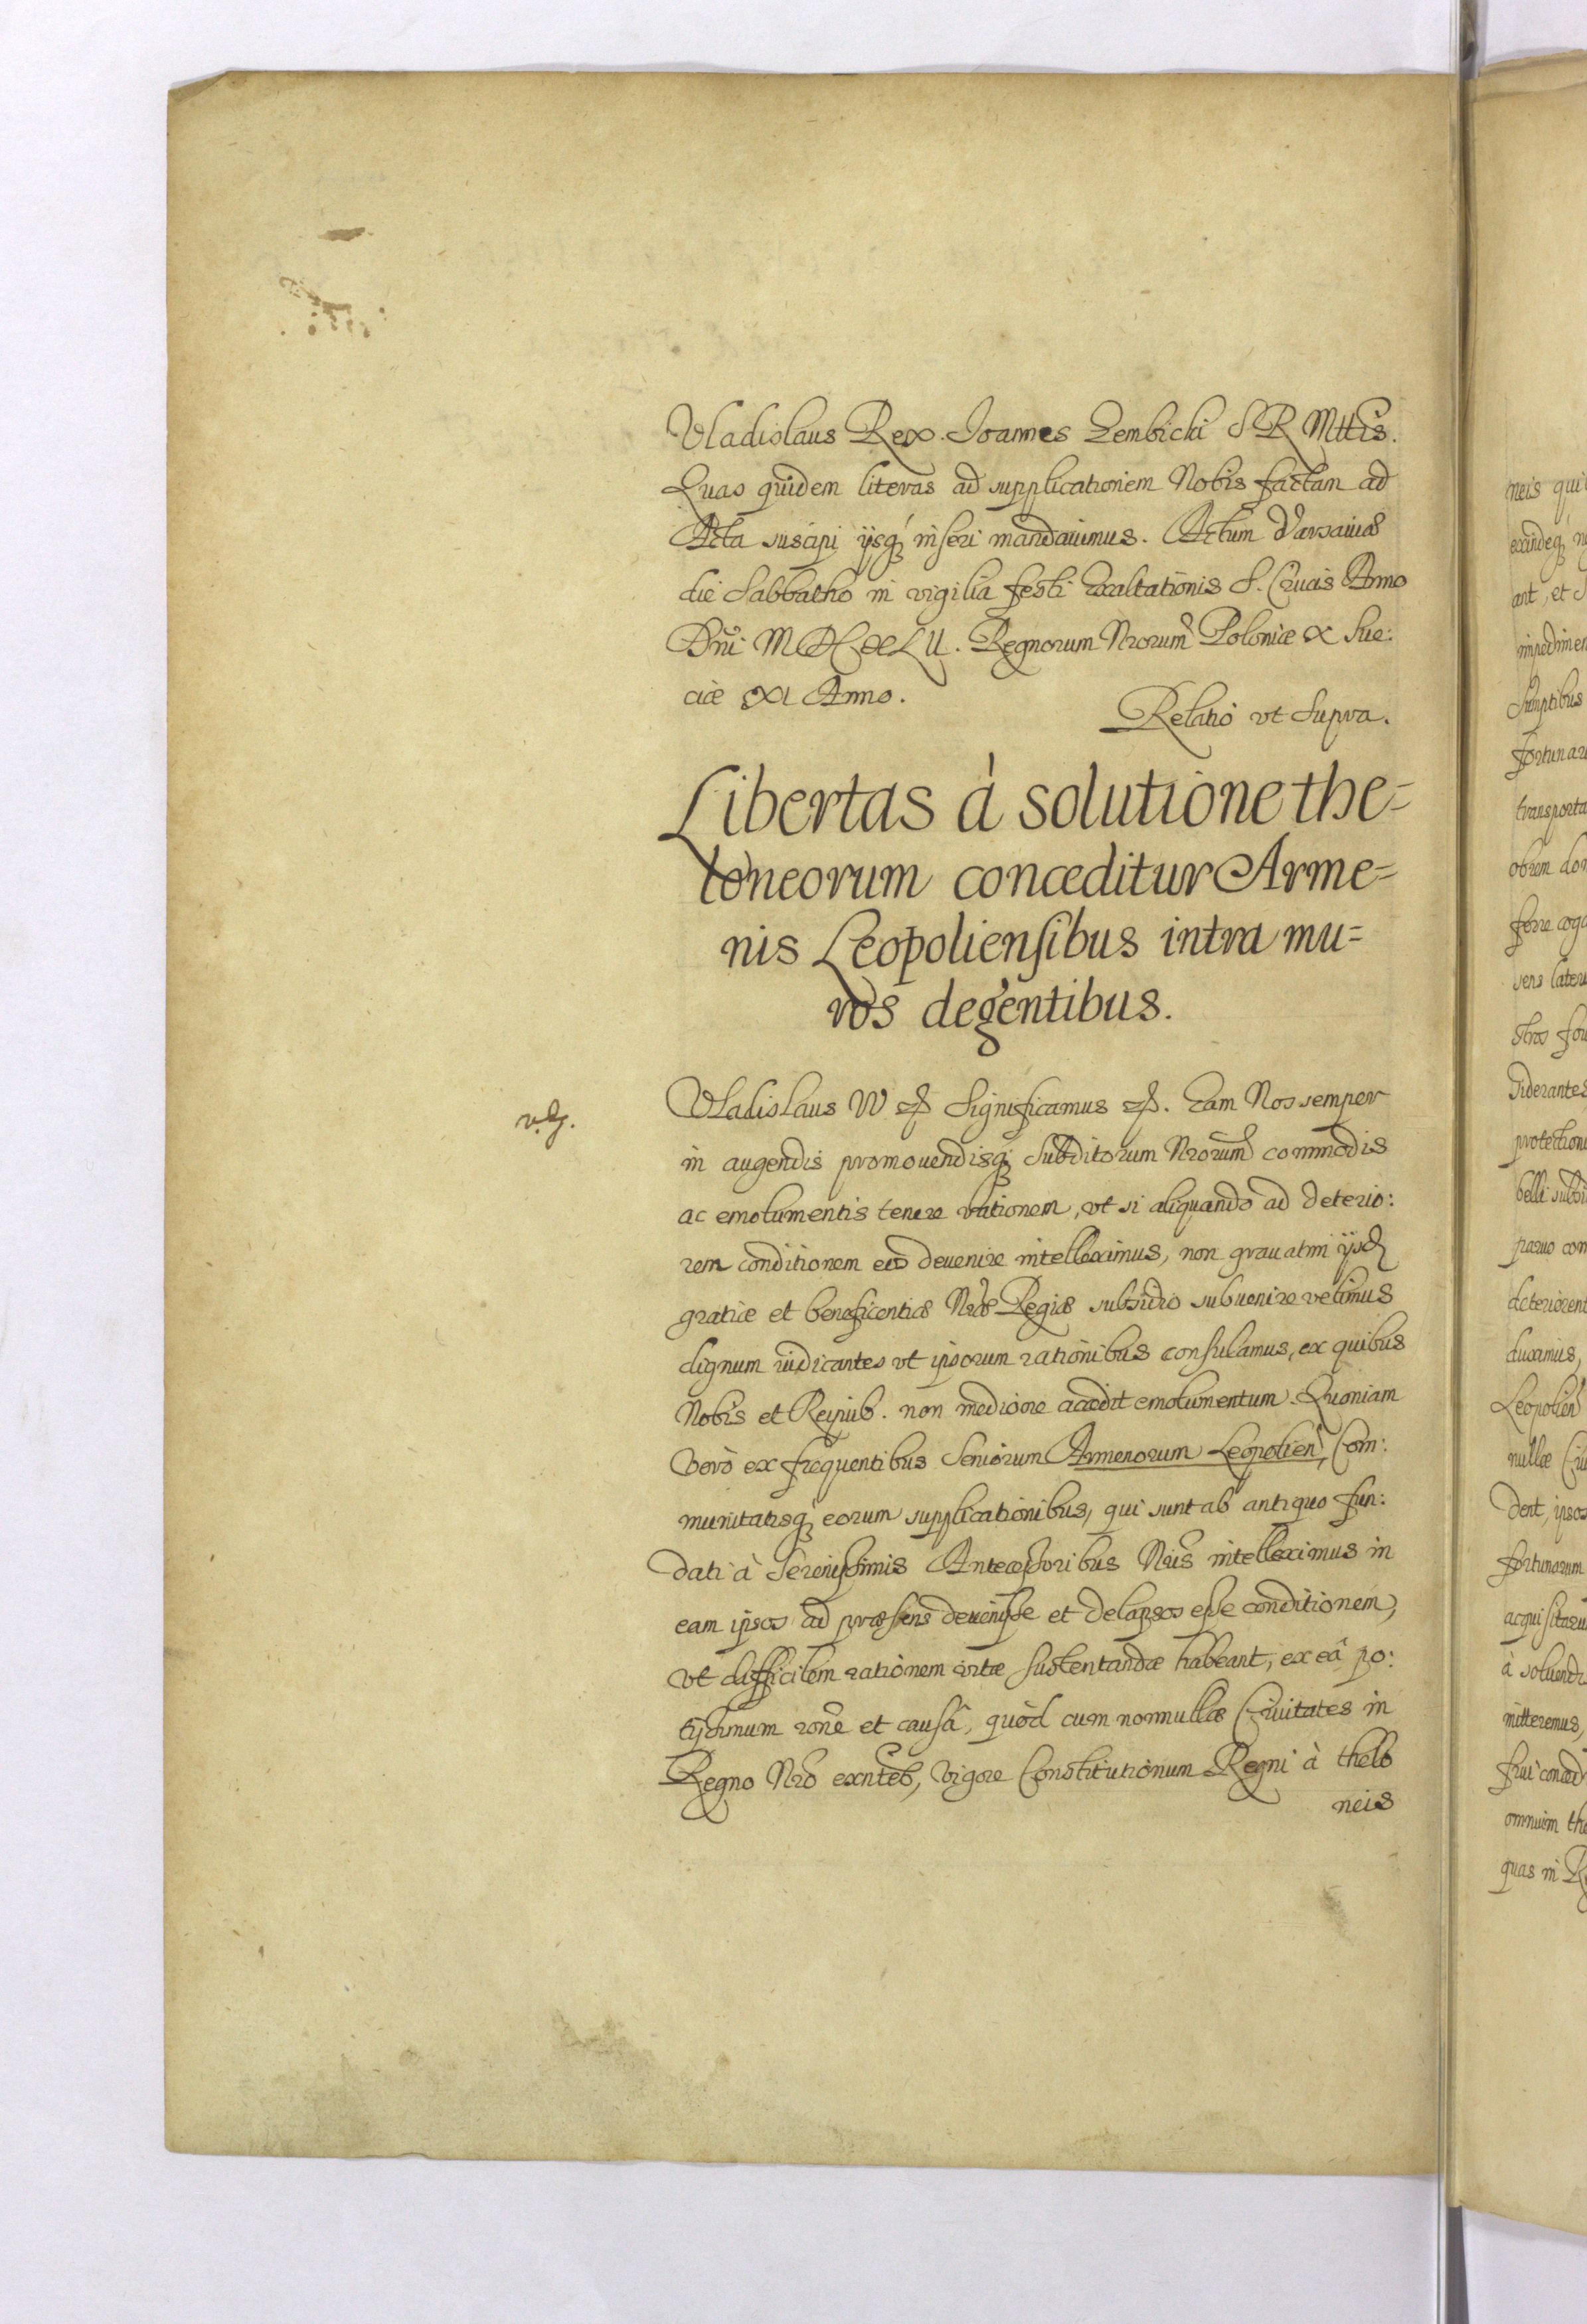 Vladislaus Rex. Joannes Zembicki S R Mttis.
Quas quidem literas ad supplicationem Nobis factam ad
Acta suscipi ijsq́; inseri mandauimus. Actum Varsauiæ
die Sabbatho in vigilia festi exaltationis S. Crucis Anno
Dni M DC XLII. Regnorum Nrorum Poloniæ X Sue:
ciæ XI Anno.
Relatio vt supra.
Libertas à solutione the=
loneorum conceditur Arme=
nis Leopoliensibus intra mu=
ros degentibus.
Vladislaus IV Significamus Eam Nos semper
in augendis promouendisq́; Subditorum Nrorum commodis
ac emolumentis tenere rationem, vt si aliquando ad deterio:
rem conditionem eos deuenire intelleximus, non grauatim ijsd
gratiæ et beneficentiæ Nræ Regiæ subsidio subuenire velimus
dignum iudicantes vt ipsorum rationibus consulamus, ex quibus
Nobis et Reipub. non mediocre accedit emolumentum. Quoniam
Verò ex frequentibus Seniorum Armenorum Leopolien, Com:
munitatisq́; eorum supplicationibus, qui sunt ab antiquo fun:
dati à Serenissimis Antecessoribus Nris intelleximus in
eam ipsos ad præsens deuenisse et delapsos esse conditionem,
vt difficilem rationem vitæ sustentandæ habeant, ex eâ po:
tissimum rone et causâ, quòd cum nonnullæ Ciuitates in
Regno Nro exnteb, vigore Constitutionum Regni à thelo
neis
neis qui
exindeq́; n
ant, et
impedimen
Sumptibus
fortunar
transporta
obrem
ferre cog
stros fo
siderantes
protection
belli subsi
paruo con
deteriorent
duximus,
Leopolien
nullæ Ciu
dent, ipsos
fortunarum
acquisitaru
à soluend
mitteremus,
frui conced
omnium th
quas in R